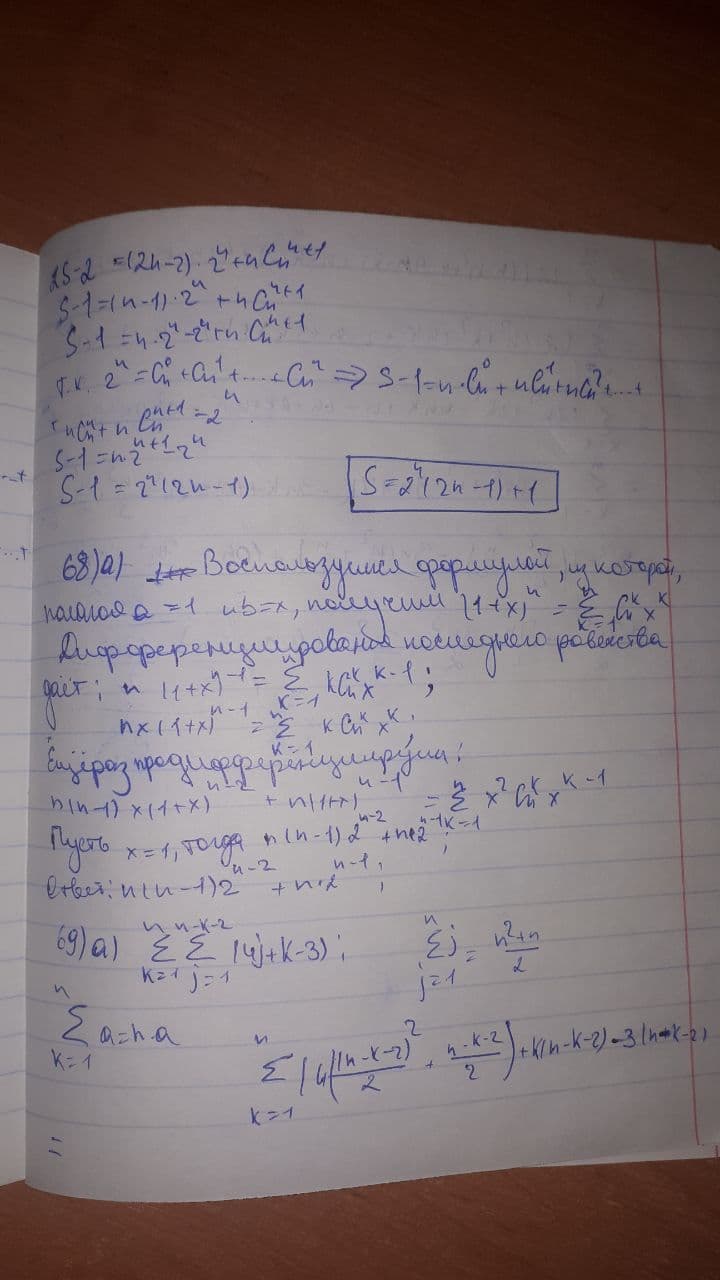 2S-2 =(2n-2)·2ⁿ+nCₙⁿ⁺¹
S-1=(n-1)·2ⁿ +nCₙⁿ⁺¹
S-1 =n·2ⁿ-2ⁿ+n Cₙⁿ⁺¹
т.к. 2ⁿ=Cₙ⁰+Cₙ¹+...+Cₙⁿ ⇒ S-1=n·Cₙ⁰ + nCₙ¹+nCₙ²+...+
+ nCₙⁿ + n Cₙⁿ⁺¹ -2ⁿ
S-1=n·2ⁿ⁺¹-2ⁿ
S-1 = 2ⁿ(2n-1) S=2ⁿ(2n-1)+1
68)а) Воспользуемся формулой, из которой,
полагая a=1 и b=x, получим (1+x)ⁿ = Σₖ₌₁ⁿ Cₙᵏ xᵏ
Дифференцирование последнего равенства
даёт: n (1+x)ⁿ⁻¹ = Σₖ₌₁ⁿ kCₙᵏ xᵏ⁻¹;
nx(1+x)ⁿ⁻¹ = Σₖ₌₁ⁿ k Cₙᵏ xᵏ;
Ещё раз продифференцируем:
n(n-1)x(1+x)ⁿ⁻² + n(1+x)ⁿ⁻¹ = Σₖ₌₁ⁿ x²Cₙᵏ xᵏ⁻¹
Пусть x=1, тогда n(n-1)2ⁿ⁻² + n·2ⁿ⁻¹;
Ответ: n(n-1)2ⁿ⁻² + n·2ⁿ⁻¹;
69)а) Σₖ₌₁ⁿ Σⱼ₌₁ⁿ⁻ᵏ⁻² (4j+k-3); Σⱼ₌₁ⁿ j = (n²+n)/2
Σₖ₌₁ⁿ a=n·a Σₖ₌₁ⁿ (4((n-k-2)²/2 + (n-k-2)/2)+k(n-k-2)-3(n-k-2)
=